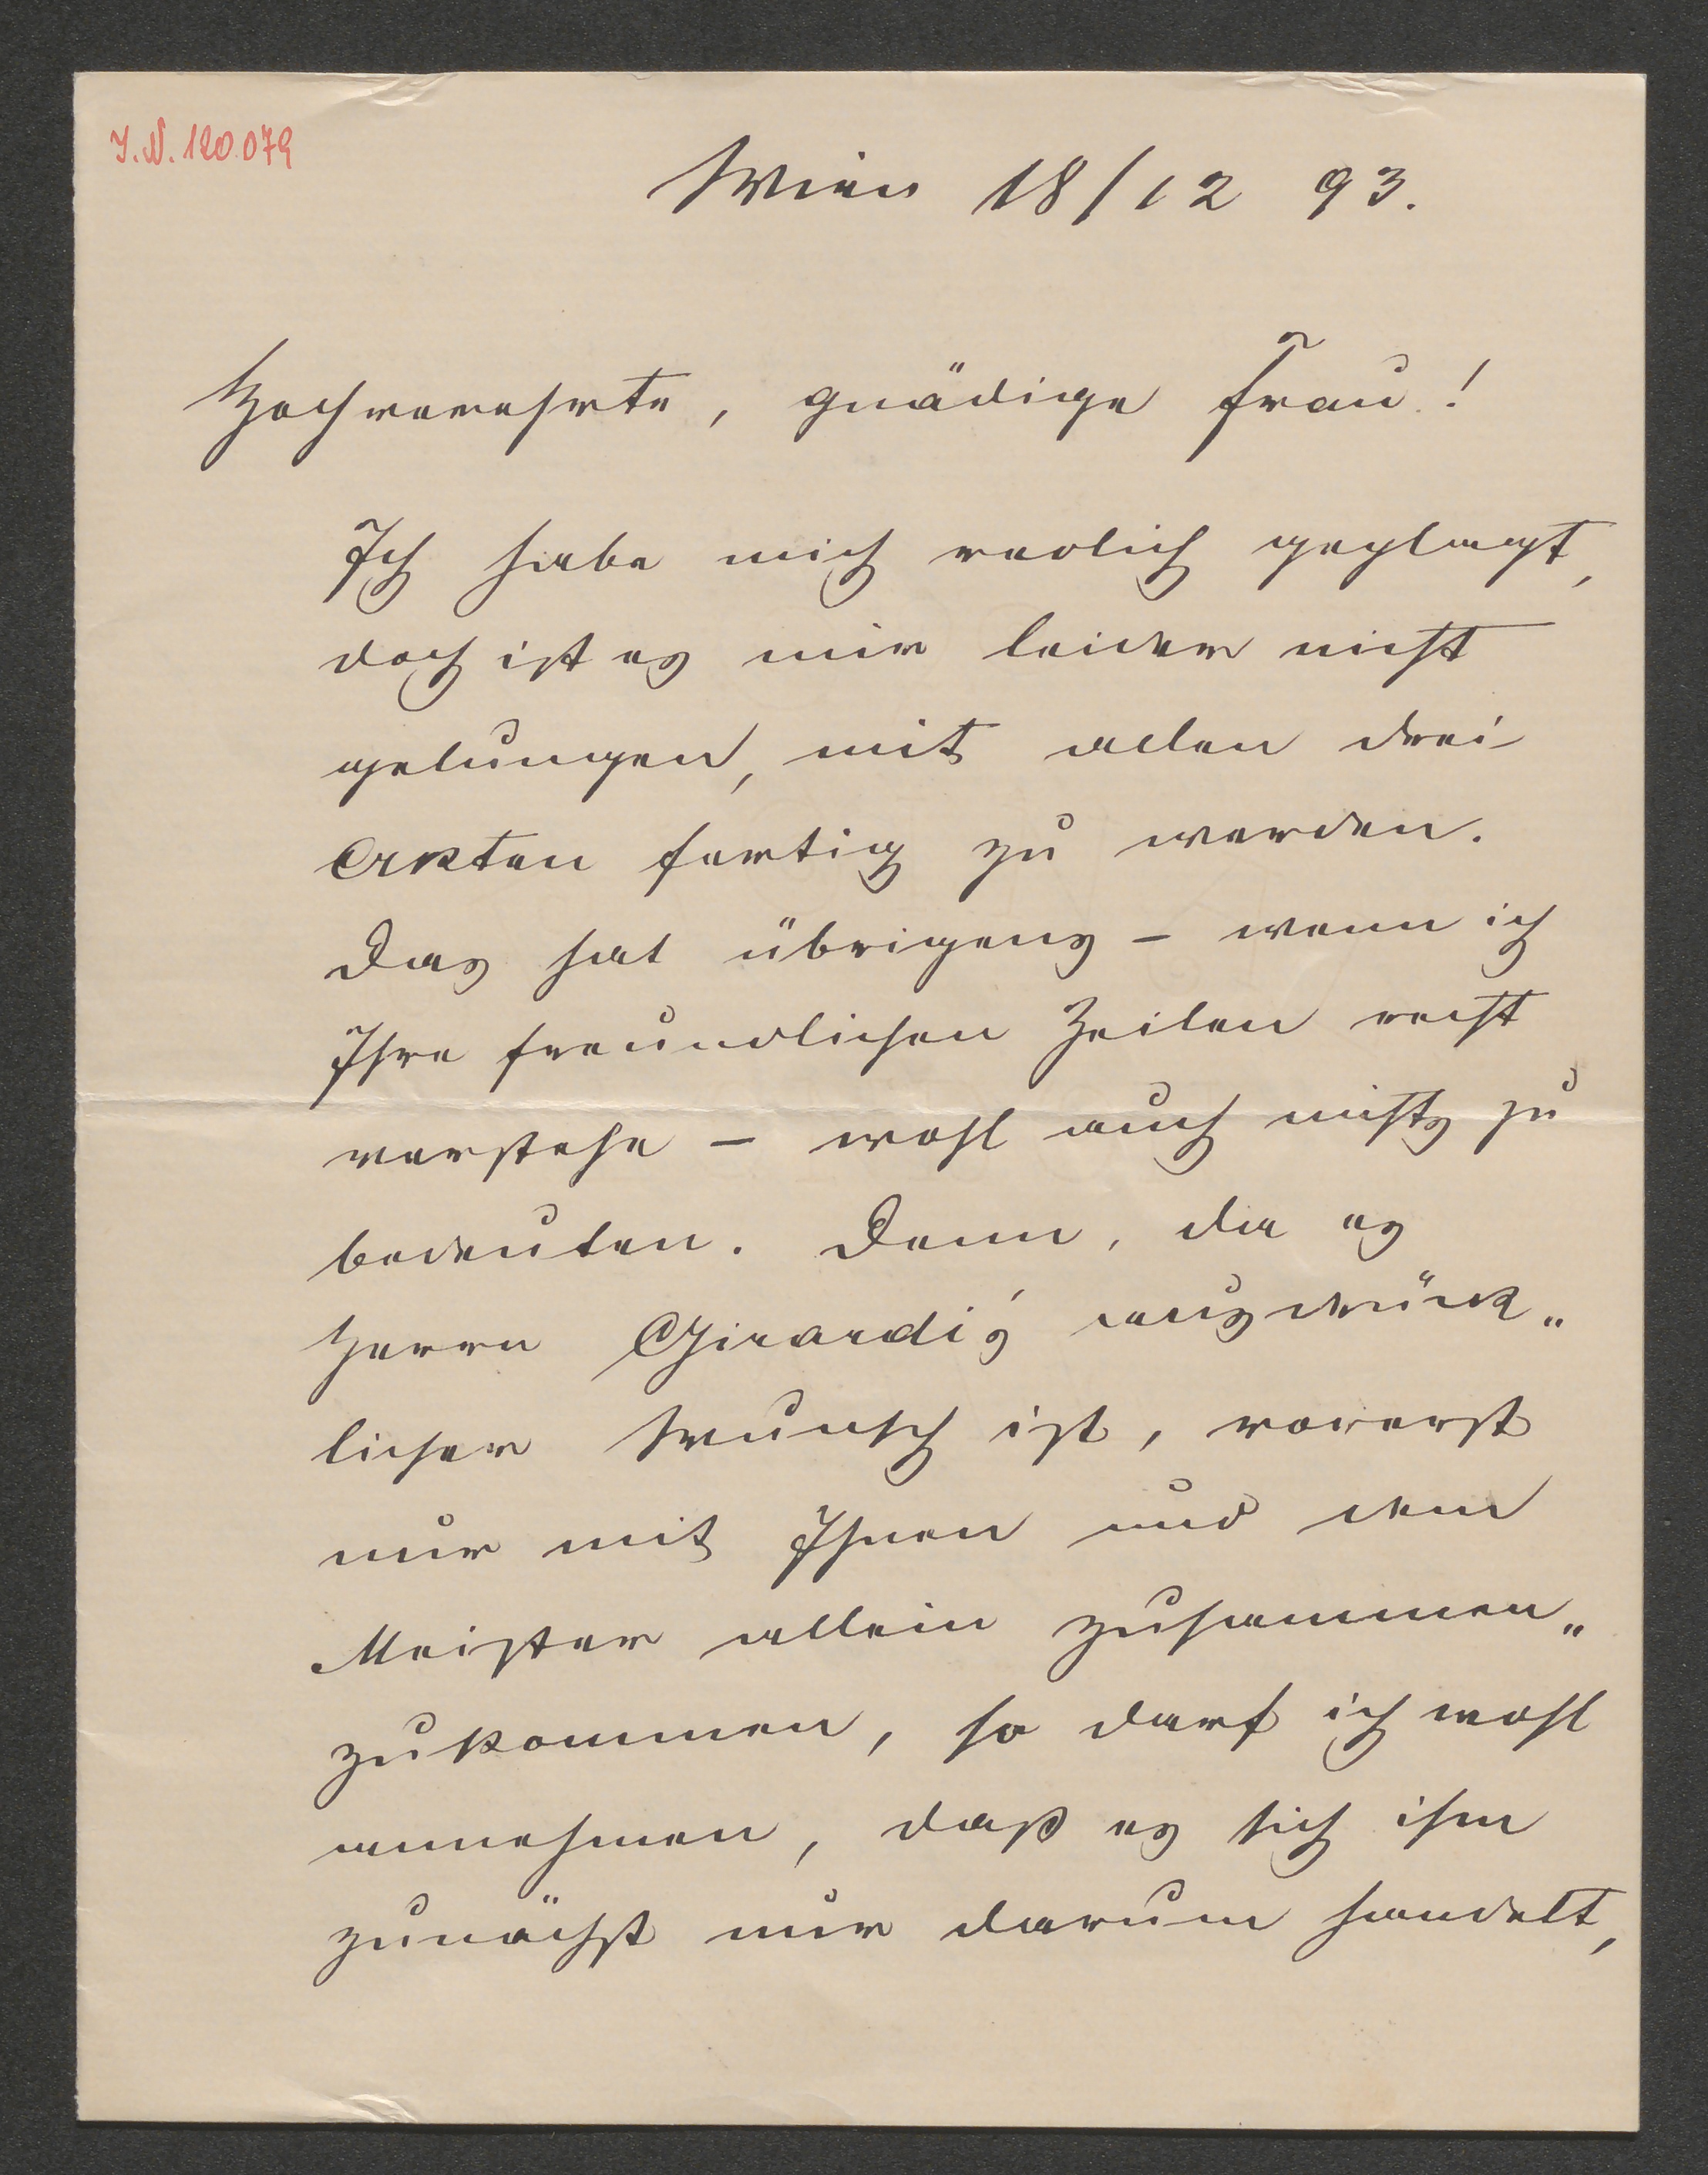 I.N. 120.079
Wien 18/12 93.
Hochverehrte, gnädige Frau!
Ich habe mich redlich geplagt,
doch ist es mir leider nicht
gelungen, mit allen drei
Akten fertig zu werden.
Das hat übrigens – wenn ich
Ihre freundlichen Zeilen recht
verstehe – wohl auch nichts zu
bedeuten. Denn, da es
Herrn Girardi's ausdrück„
licher Wunsch ist, vorerst
nur mit Ihnen und dem
Meister allein zusammen„
zukommen, so darf ich wohl
annehmen, daß es sich ihm
zunächst nur darum handelt,